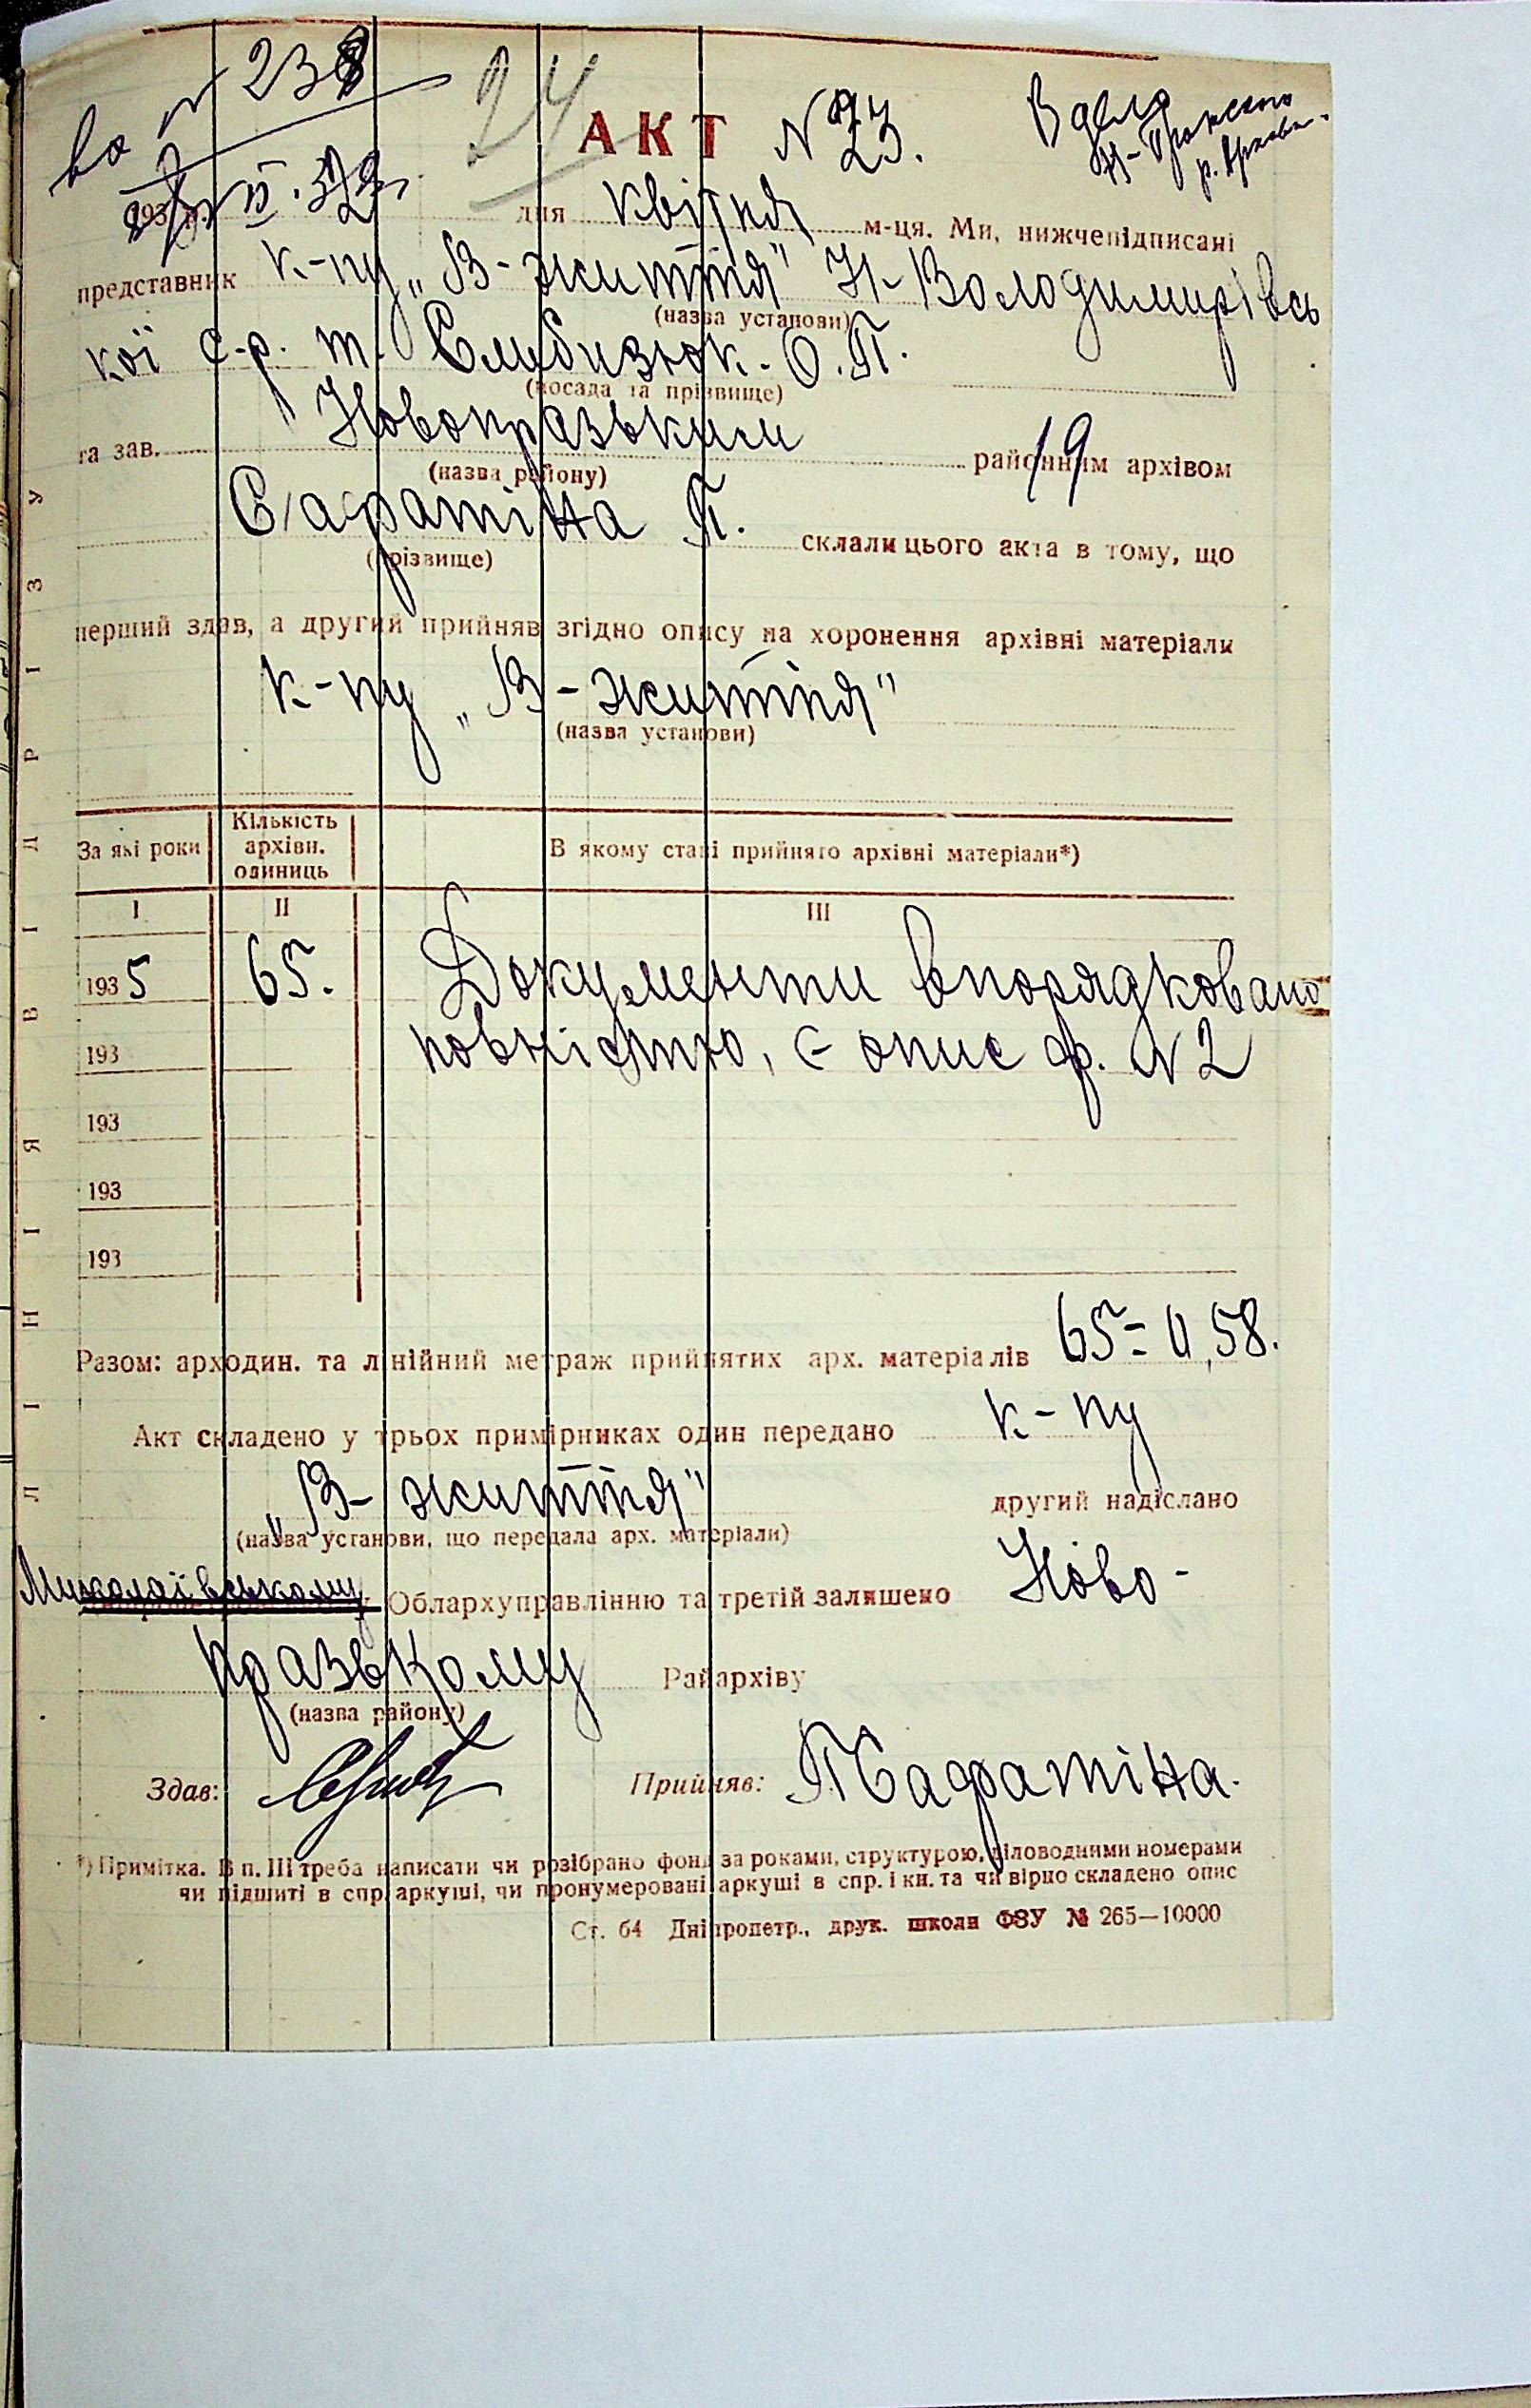 238
24
АКТ № 23.
В дело
дня квітня м-ця. Ми, нижчепідписані
представник к-пу „В-життя" Н-Володимирівсь
(назва установи)
кої с-р. т. О.П.
(посада та прізвище)
та зав. Новопразьким районним архівом 19
(назва району)
Сафатіна П. склали цього акта в тому, що
(прізвище)
перший здав, а другий прийняв згідно опису на хоронення архівні матеріали
к-пу „В-життя"
(назва установи)
За які роки
Кількість архівн. одиниць
В якому стані прийнято архівні матеріали*)
I II III
1935 65. Документи впорядковано
193 повністю, є опис ф. № 2
193
193
193
Разом: арходин. та лінійний метраж прийнятих арх. матеріалів 65 = 0,58.
Акт складено у трьох примірниках один передано к-пу
„В-життя" другий надіслано
(назва установи, що передала арх. матеріали)
Миколаївському Облархуправлінню та третій залишено Ново-
празькому Райархіву
(назва району)
Здав: Прийняв: ПСафатіна.
*) Примітка. В п. III треба написати чи розібрано фонд за роками, структурою, діловодними номерами
чи підшиті в спр. аркуші, чи пронумеровані аркуші в спр. і кн. та чи вірно складено опис
Ст. 64 Дніпропетр., друк. школи ФЗУ № 265—10000
ЛІНІЯ ВІДРІЗУ